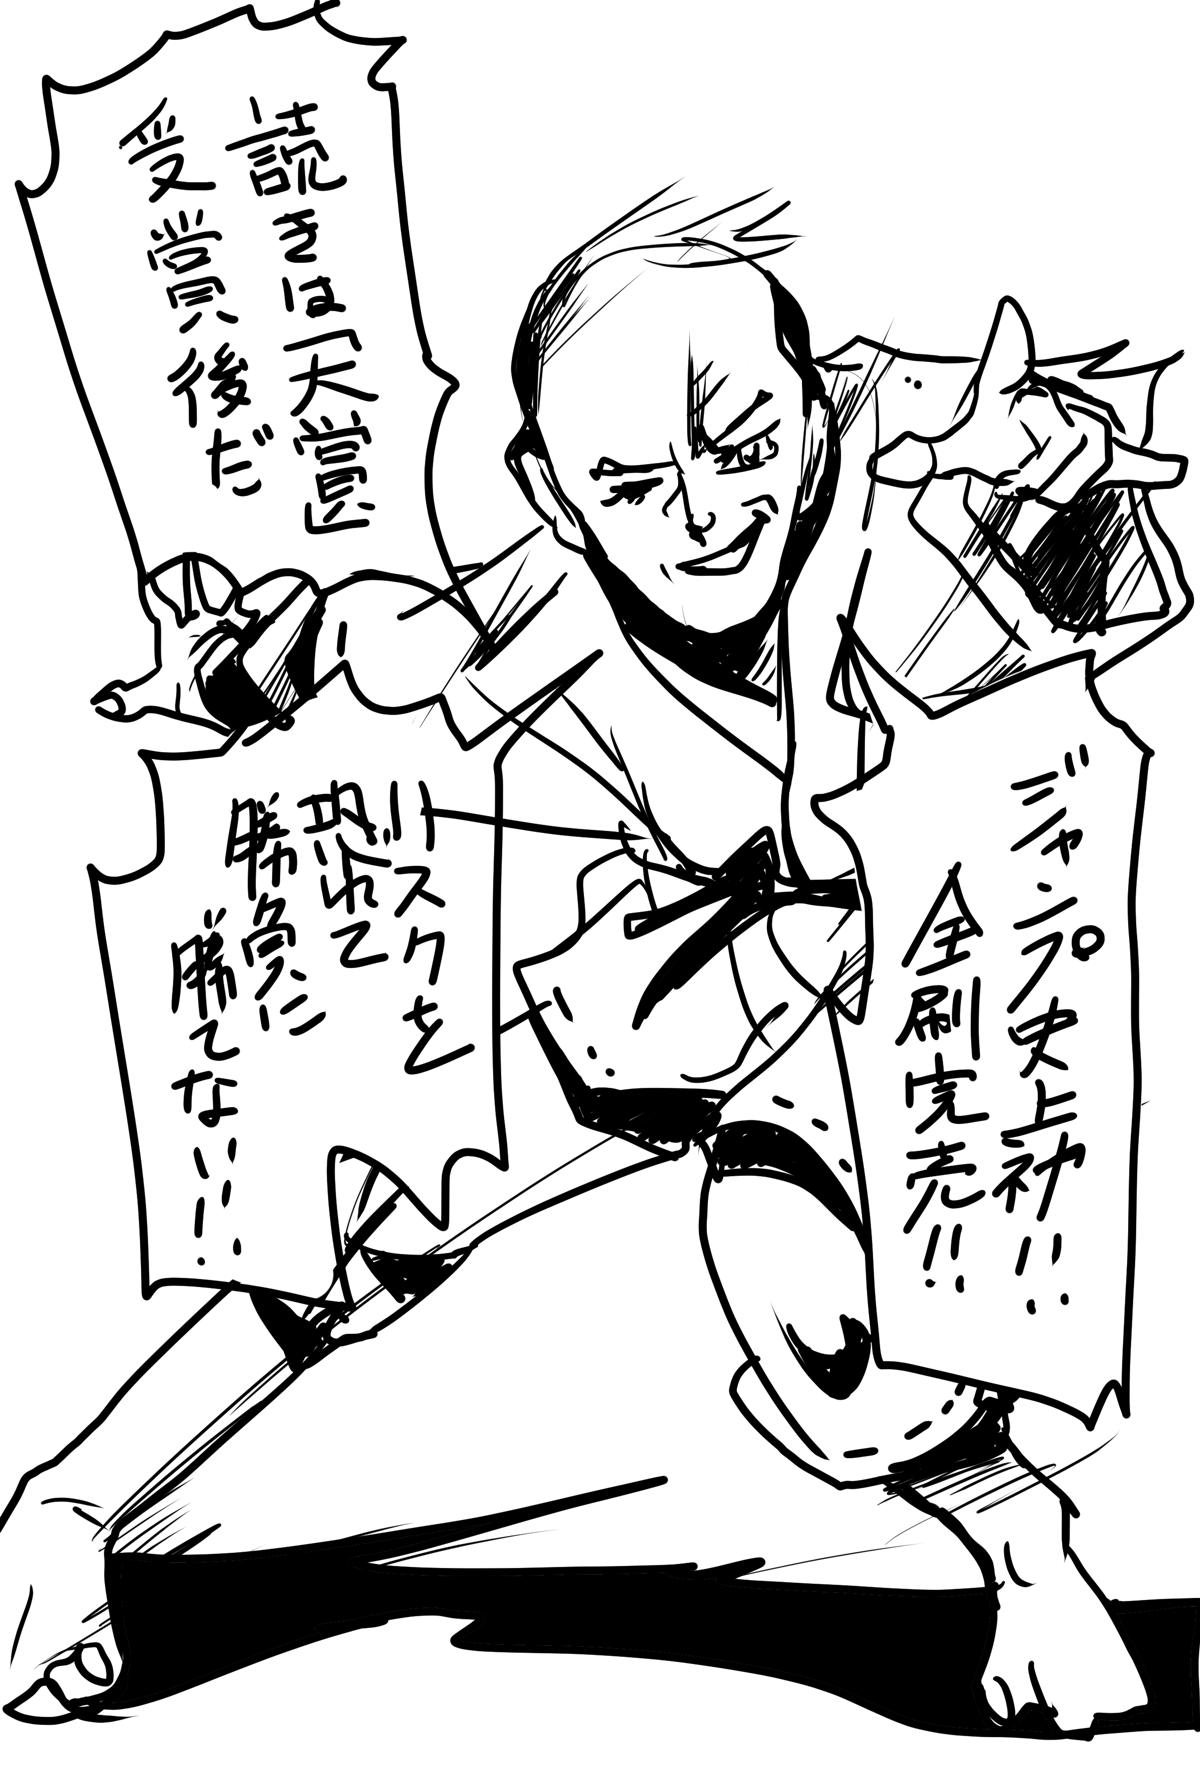 読きは「天賞」
受賞後だ
ジャンプ史上初!!
全刷完売!!
リスクを
恐れて
勝負に
勝てない!!